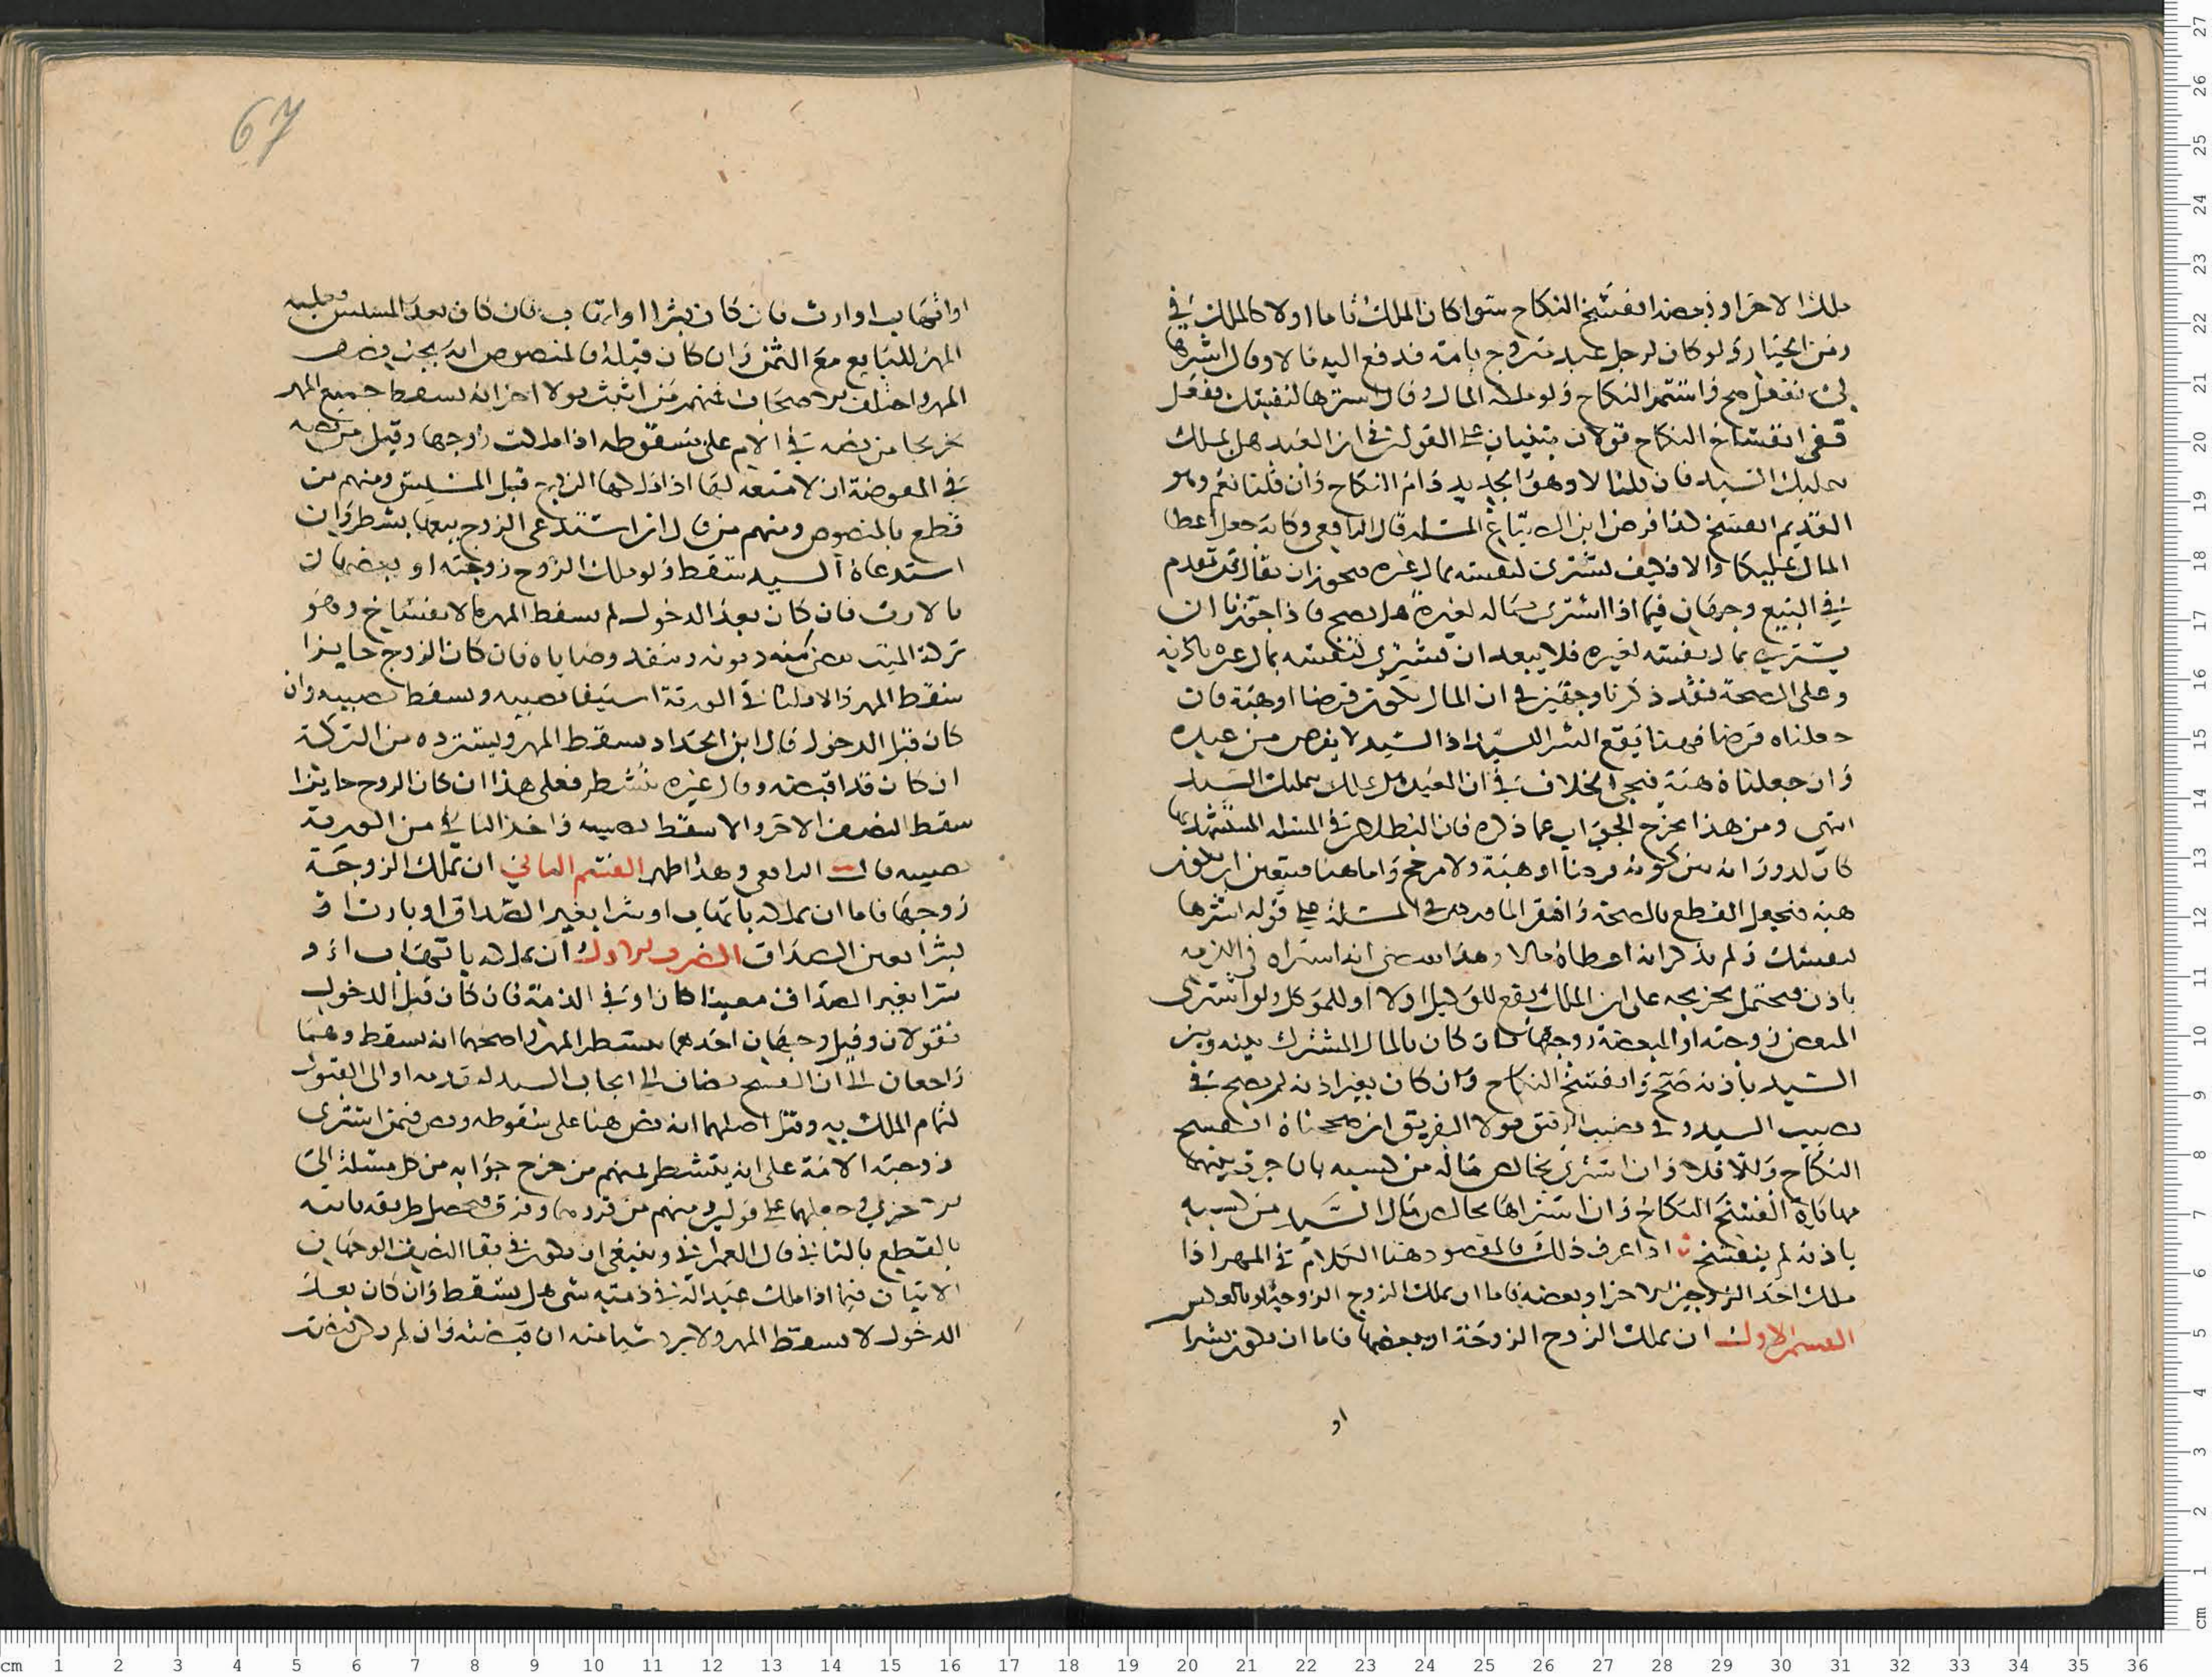 ملك الاخر او بعضه انفسخ النكاح سوا كان الملك تاما اولا كالملك في
زمن الخيار ولو كان لرجل عبد متزوج بامة فدفع اليه مالا وقال اشترها
لي ففعل صح واستمر النكاح ولو ملكه المال وقال اشترها لنفسك ففعل
ففي انفساخ النكاح قولان مبنيان على القولين في ان العبد هل يملك
بتمليك السيد فان قلنا لا وهو الجديد دام النكاح وان قلنا نعم وهو
القديم انفسخ كذا فرض ابن الصباغ المسلة قال الرافعي وكانه جعل اعطا
المال تمليكا والا فكيف يشتري لنفسه بمال غيره فيجوز ان يقال قد تقدم
في البيع وجهان فيما اذا اشترى بماله لغيره هل يصح فاذا جوزنا ان
يشتري بمال نفسه لغيره فلا يبعد ان يشتري لنفسه بمال غيره باذنه
وعلى الصحة فقد ذكرنا وجهين في ان المال يكون قرضا او هبة فان
جعلناه قرضا فههنا يقع الشرا للسيد اذ السيد لا يقرض من عبده
وان جعلناه هبة فيجي الخلاف في ان العبد هل يملك بتمليك السيد
انتهى ومن هذا يخرج الجواب عما ذكره فان البطلان في المسلة المستشهد بها
كان لدورانه بين كونه قرضا او هبة ولا مرجح واما هنا فيتعين ان يكون
هبة فنجعل القطع بالصحة في المسلة على قوله اشترها
لنفسك ولم يذكر انه اعطاه مالا وهذا انه اشتراه في الذمة
باذن فيحتمل تخريجه على ان الملك يقع للوكيل اولا او للموكل ولو اشترى
المبعض زوجته او المبعضة زوجها فان كان بالمال المشترك بينه وبين
السيد باذنه صح وانفسخ النكاح وان كان بغير اذنه لم يصح في
نصيب السيد وفي نصيب قولا تفريق ان صححناه انفسخ
النكاح والا فلا وان اشترى بخالص ماله من كسبه بان جرت بينهما
مهاياة انفسخ النكاح وان اشتراها بخالص مال السيد من كسبه
باذنه لم ينفسخ اذا عرف ذلك فالمقصود هنا الكلام في المهر اذا
ملك احد الزوجين الاخر او بعضه فاما ان يملك الزوج الزوجة او بالعكس
القسم الاول ان يملك الزوج الزوجة او بعضها فاما ان يكون بشرا
او
67
او اتهاب او ارث فان كان بشرا او اتهاب فان كان بعد المسيس فعليه
المهر للبايع مع الثمن وان كان قبله فالمنصوص انه يجب نصف
المهر واختلف الاصحاب فمنهم من اثبت قولا اخر انه يسقط جميع المهر
تخريجا من نصه في الام على سقوطه اذا ملكت زوجها وقيل من نصه
في المفوضة ان لا متعة لها اذا الزوج قبل المسيس ومنهم من
قطع بالمنصوص ومنهم من قال ان استدعى الزوج بيعها بشطر وان
استدعاه السيد سقط ولو ملك الزوج زوجته او بعضها
بالارث فان كان بعد الدخول لم يسقط المهر بالانفساخ وهو
تركة الميت يقضى منه ديونه وينفذ وصاياه فان كان الزوج حايزا
سقط المهر والا فللباقي في الورثة استيفا نصيبه ويسقط نصيبه وان
كان قبل الدخول قال ابن الحداد يسقط المهر ويسترده من التركة
ان كان قد اقبضه وقال غيره يتشطر فعلى هذا ان كان الزوج حايزا
سقط النصف الاخر والا سقط نصيبه واخذ الباقي من الورثة
نصيبه قال الرافعي وهذا اظهر القسم الثاني ان تملك الزوجة
زوجها فاما ان تملكه باتهاب او شرا بغير الصداق او بارث او
بشرا بعين الصداق الضرب الاول ان تملكه باتهاب او
شرا بغير الصداق معينا كان او في الذمة فان كان قبل الدخول
فقولان وقيل وجهان احدهما يتشطر المهر واصحهما انه يسقط وهما
راجعان الى ان الفسخ يضاف الى ايجاب السيد او الى القبول
لتمام الملك به وقيل اصلهما انه نص هنا على سقوطه ونص فيمن اشترى
زوجته الامة على انه يتشطر فمنهم من خرج جوابه من كل مسلة الى
الاخرى وجعلهما على قولين ومنهم من قررهما وفرق فيحصل طريقة ثانية
بالقطع بالثاني قال العمراني وينبغي ان يكون في بقا النصف الوجهان
الاتيان فيما اذا ملك عبدا له في ذمته شي هل يسقط وان كان بعد
الدخول لا يسقط المهر ولا يرد شيا منه ان قبضته وان لم يكن قبضته